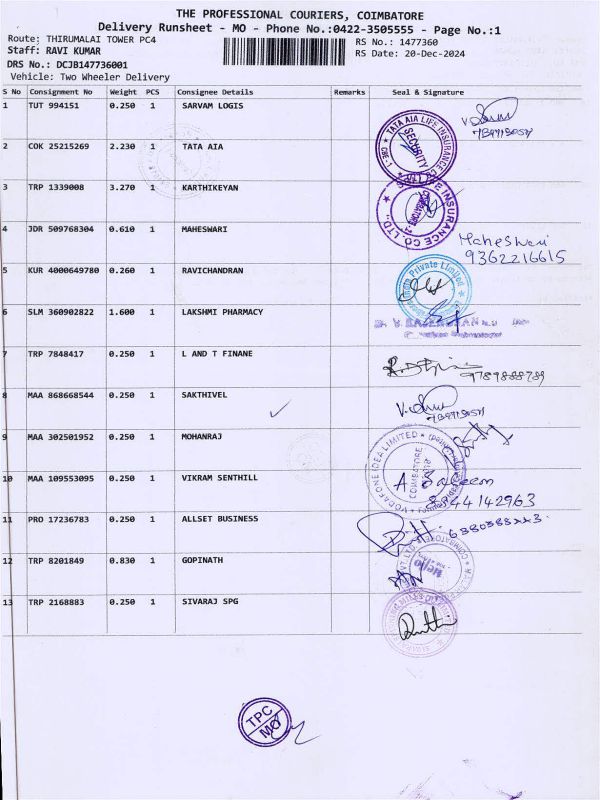 THE PROFESSIONAL COURIERS, COIMBATORE
Delivery Runsheet - MO - Phone No.:0422-3505555 - Page No.:1
Route: THIRUMALAI TOWER PC4
Staff: RAVI KUMAR
DRS No.: DCJB147736001
Vehicle: Two Wheeler Delivery
RS No.: 1477360
RS Date: 20-Dec-2024
S No Consignment No Weight PCS Consignee Details Remarks Seal & Signature
1 TUT 994151 0.250 1 SARVAM LOGIS
2 COK 25215269 2.230 1 TATA AIA
TATA AIA LIFE INSURANCE
SECURITY
CBE-1
3 TRP 1339008 3.270 1 KARTHIKEYAN
INSURANCE CO. LTD.
4 JDR 509768304 0.610 1 MAHESWARI
Maheswari
9362216615
5 KUR 4000649780 0.260 1 RAVICHANDRAN
Private Limited
6 SLM 360902822 1.600 1 LAKSHMI PHARMACY
7 TRP 7848417 0.250 1 L AND T FINANE
9789888789
8 MAA 868668544 0.250 1 SAKTHIVEL
9 MAA 302501952 0.250 1 MOHANRAJ
VODAFONE IDEA LIMITED
COIMBATORE
10 MAA 109553095 0.250 1 VIKRAM SENTHILL
A. Saleem
11 PRO 17236783 0.250 1 ALLSET BUSINESS
12 TRP 8201849 0.830 1 GOPINATH
13 TRP 2168883 0.250 1 SIVARAJ SPG
TPC
MO